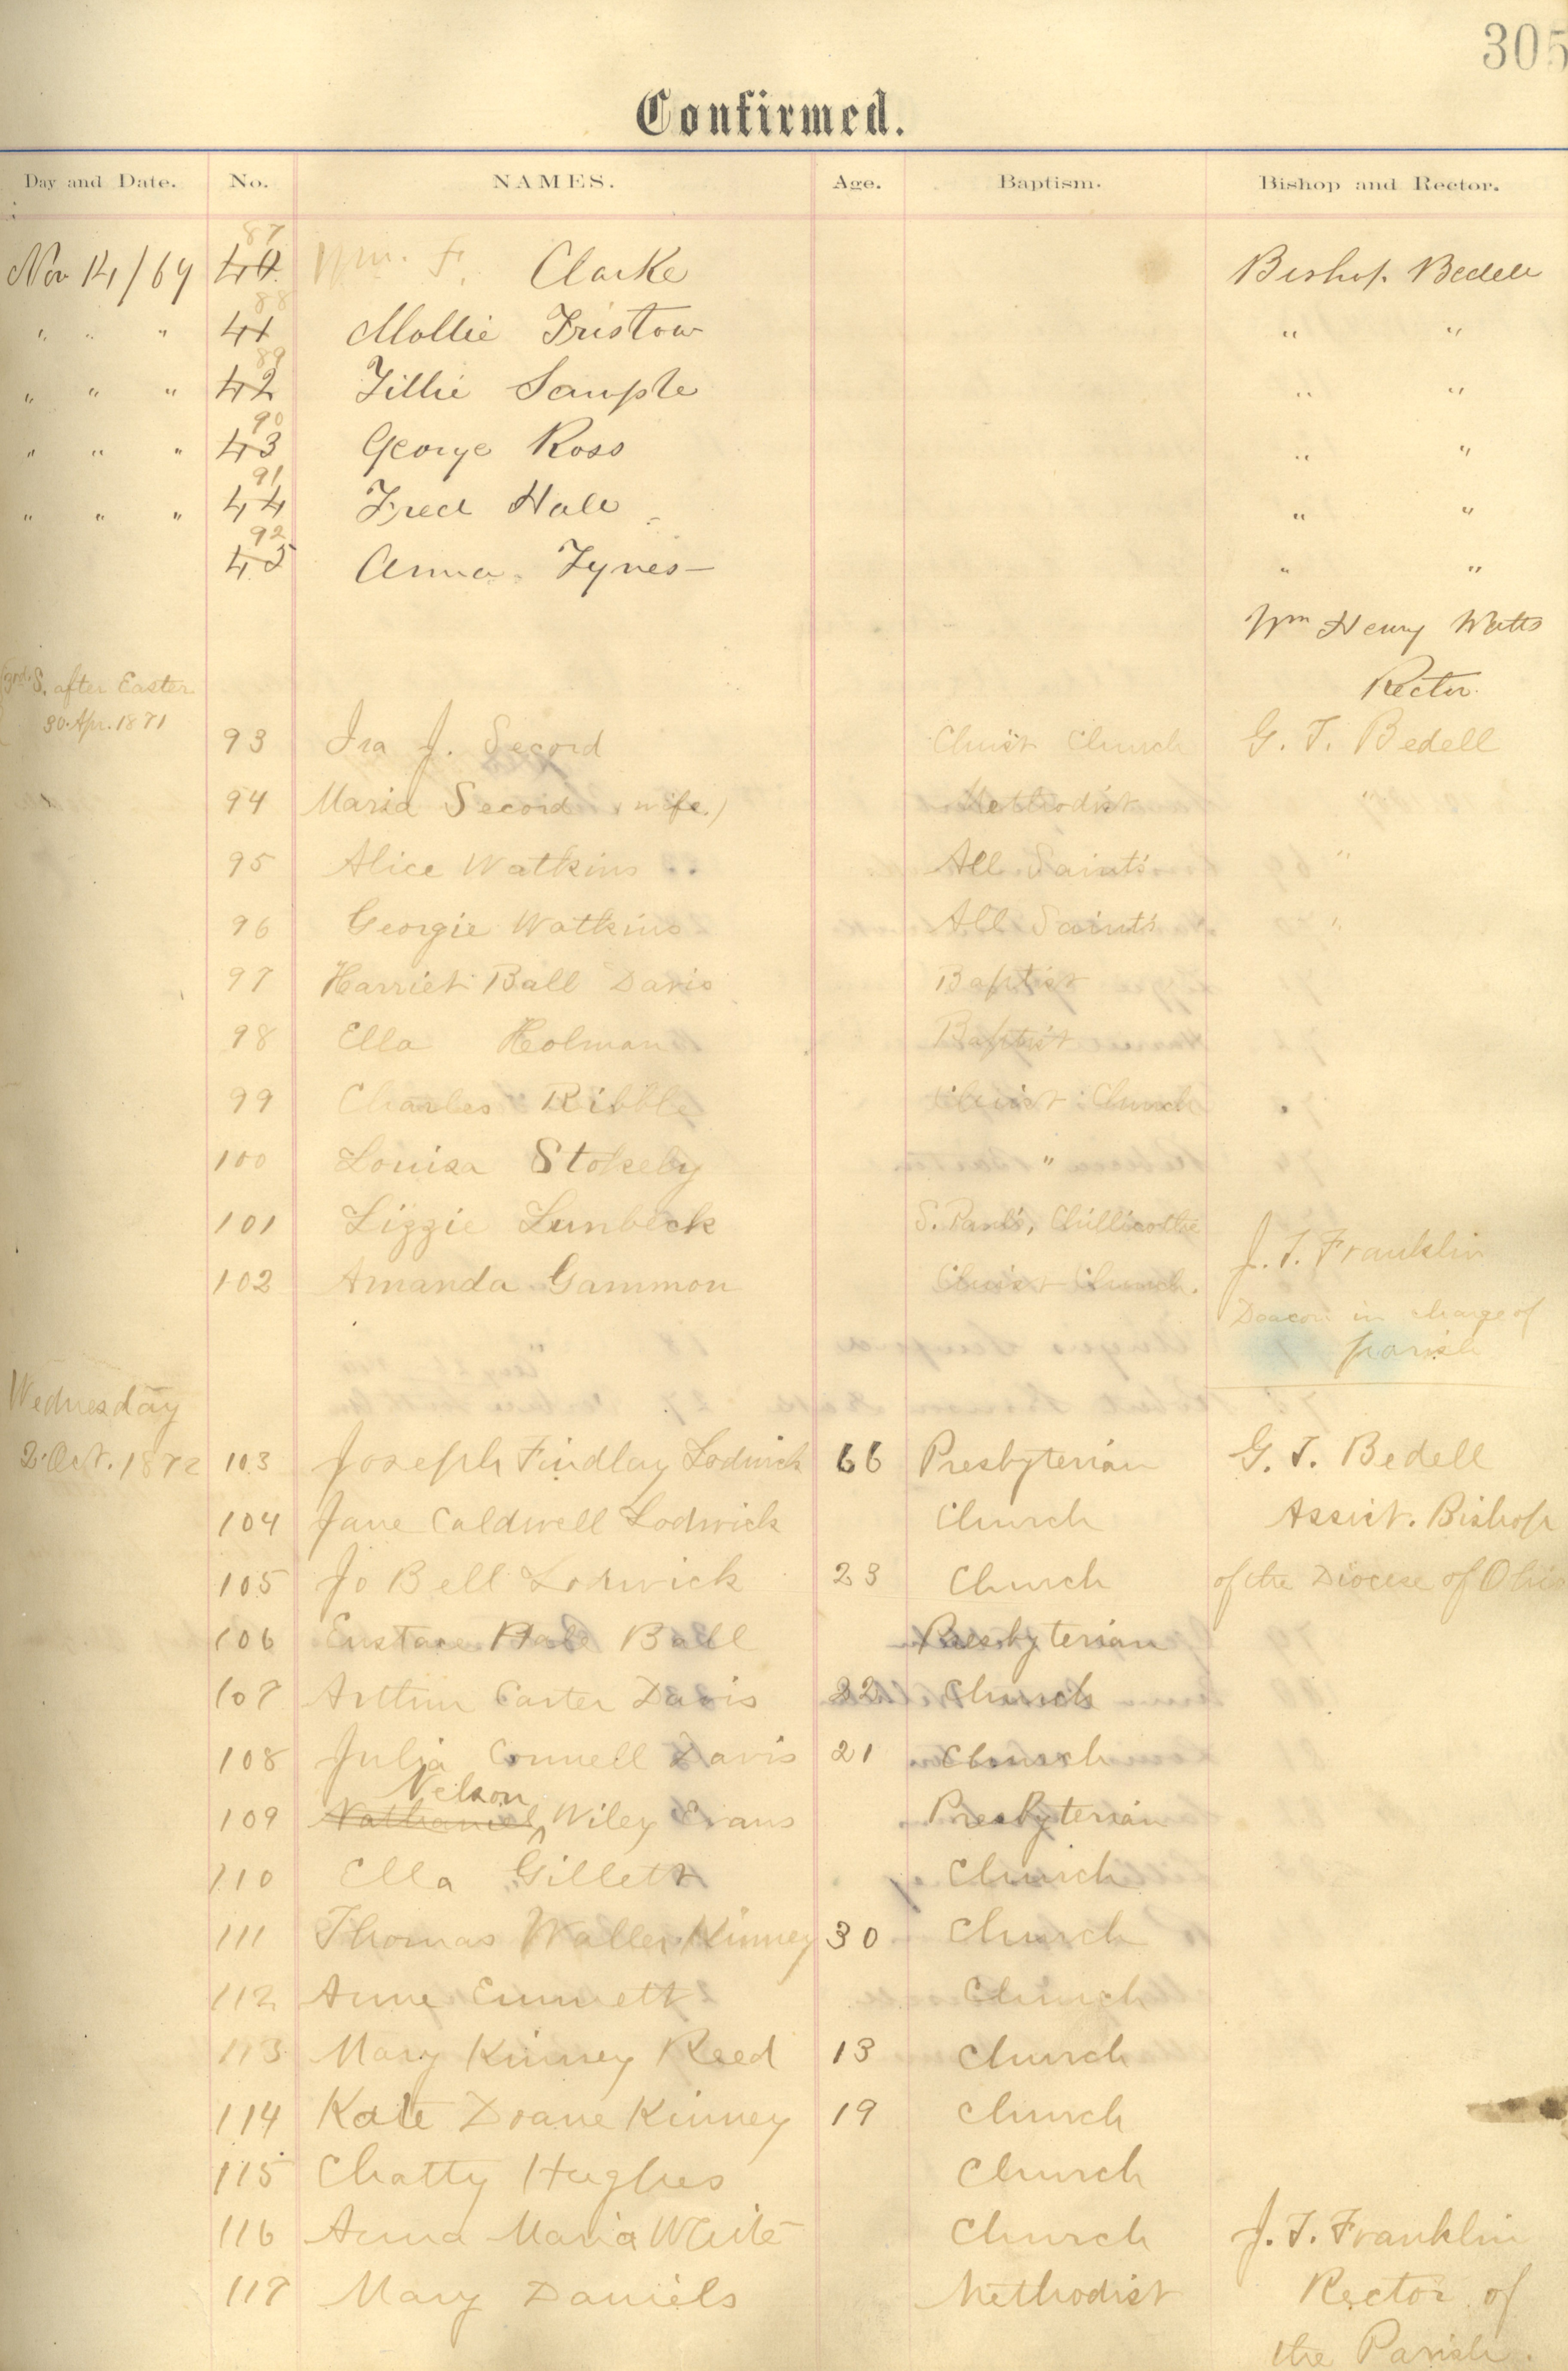 305
Confirmed.
Day and Date. No. NAMES. Age. Baptism. Bishop and Rector.
87
Nov 14/69 40 Wm. F. Clarke Bishop Bedell
88
" " " 41 Mollie Tristow " "
89
" " " 42 Tillie Sample " "
90
" " " 43 George Ross " "
91
" " " 44 Fred Hall " "
92
45 Anna Tynes " "
Wm Henry Watts
3rd S. after Easter Rector.
30. Apr. 1871
93 Ira J. Secord Christ Church G. T. Bedell
94 Maria Secord (wife.) Methodist "
95 Alice Watkins All Saints "
96 Georgie Watkins All Saints "
97 Harriet Ball Davis Baptist
98 Ella Holman Baptist
99 Charles Ribble Christ Church
100 Louisa Stokely "
101 Lizzie Lunbeck S. Paul's, Chillicothe
J. T. Franklin
102 Amanda Gammon Christ Church.
Deacon in charge of
parish
Wednesday
2 Oct. 1872 103 Joseph Findlay Lodwick 66 Presbyterian G. T. Bedell
104 Jane Caldwell Lodwick Church Assist. Bishop
105 Jo Bell Lodwick 23 Church of the Diocese of Ohio
106 Eustace Hale Ball Presbyterian
107 Arthur Carter Davis 22 Church
108 Julia Connell Davis 21 Church
Nelson
109 Nathaniel Wiley Evans Presbyterian
110 Ella Gillett Church
111 Thomas Waller Kinney 30 Church
112 Anne Emmett Church
113 Mary Kinney Reed 13 Church
114 Kate Doane Kinney 19 Church
115 Chatty Hughes Church
116 Anna Maria White Church J. T. Franklin
117 Mary Daniels Methodist Rector of
the Parish.